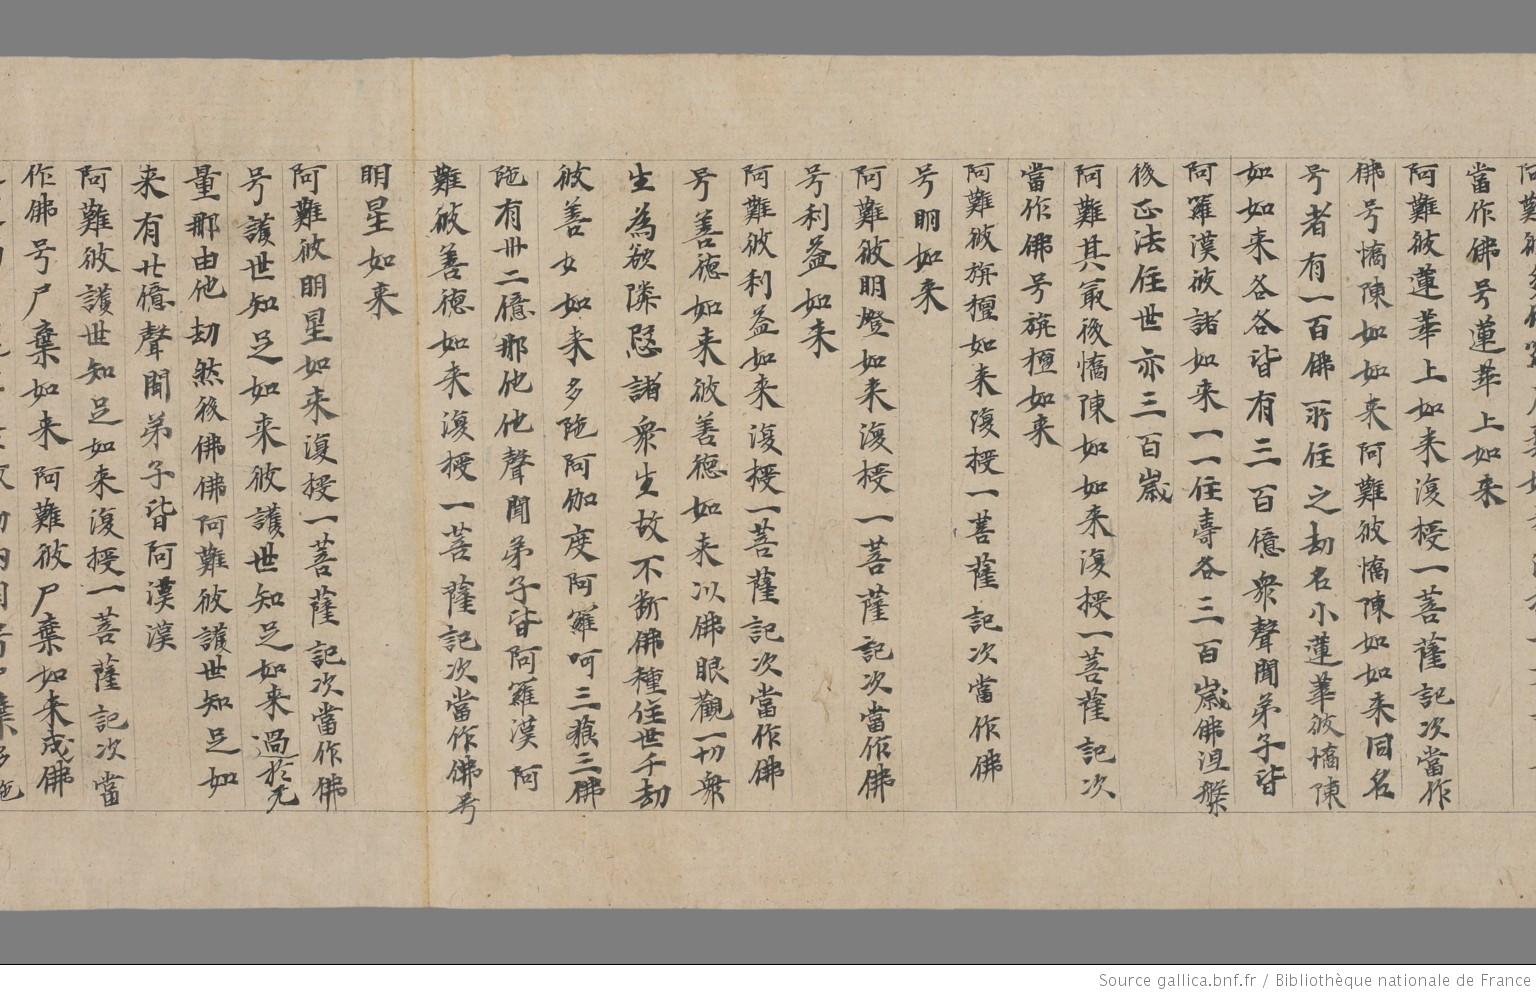 當作佛号蓮華上如来
阿難彼蓮華上如来復授一菩薩記次當作
佛号憍陳如如来阿難彼憍陳如如来同名
号者有一百佛所住之劫名小蓮華彼憍陳
如如来各各皆有三百億衆聲聞弟子皆
阿羅漢彼諸如来一一住壽各三百歲佛涅槃
後正法住世亦三百歲
阿難其冣後憍陳如如来復授一菩薩記次
當作佛号旃檀如来
阿難彼旃檀如来復授一菩薩記次當作佛
号明如来
阿難彼明燈如来復授一菩薩記次當作佛
号利益如来
阿難彼利益如来復授一菩薩記次當作佛
号善德如来彼善德如来以佛眼觀一切衆
生為欲隣愍諸衆生故不斷佛種住世千劫
彼善女如来多陁阿伽度阿羅呵三藐三佛
陁有卅二億那他他聲聞弟子皆阿羅漢阿
難彼善德如来復授一菩薩記次當作佛号
明星如来
阿難彼明星如来復授一菩薩記次當作佛
号護世知足如来彼護世知足如来過於无
量那由他劫然後佛佛阿難彼護世知足如
来有廿億聲聞弟子皆阿漢漢
阿難彼護世知足如来復授一菩薩記次當
作佛号尸棄如来阿難彼尸棄如来成佛
Source gallica.bnf.fr / Bibliothèque nationale de France